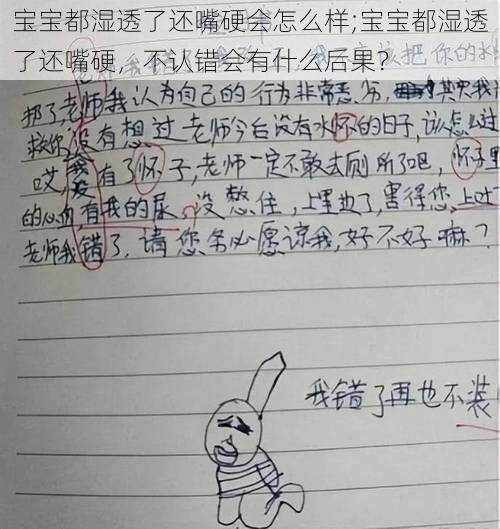 宝宝都湿透了还嘴硬会怎么样;宝宝都湿透
了还嘴硬，不认错会有什么后果?
该把你的水
那了老师我认为自己的行为非常恶劣,其实我
救你没有想过老师今后没有水怀的日子,该怎么过
哎,我有了怀子,老师一定不敢去厕所了吧,怀子里
的心血,有我的尿,没憋住,上里边了,害得您上吐
老师我错了,请您务必愿谅我,好不好嘛?
我错了再也不装